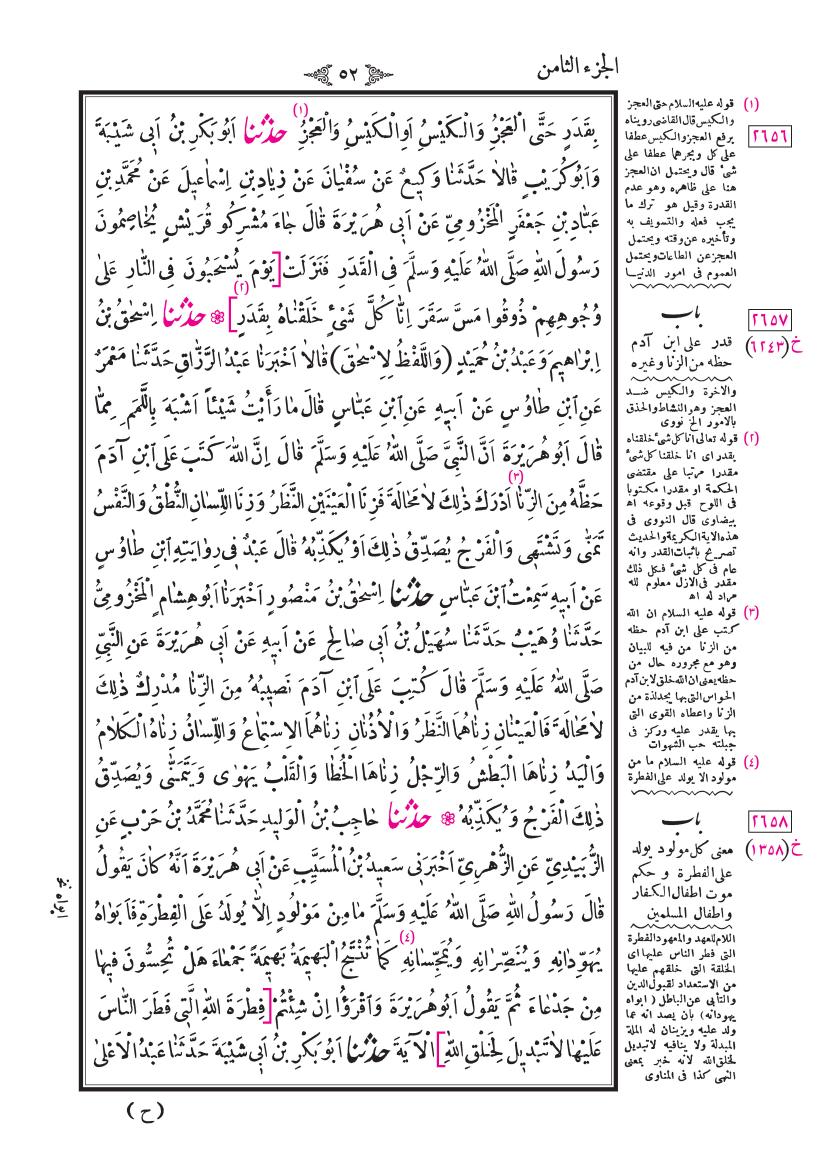 الجزء الثامن
٥٢
بِقَدَرٍ حَتَّى الْعَجْزُ وَالْكَيْسُ اَوِالْكَيْسُ وَالْعَجْزُ (١) حدثنا اَبُو بَكْرِ بْنُ اَبِى شَيْبَةَ
وَاَبُو كُرَيْبٍ قَالَا حَدَّثَنَا وَكِيعٌ عَنْ سُفْيَانَ عَنْ زِيَادِ بْنِ اِسْمَاعِيلَ عَنْ مُحَمَّدِ بْنِ
عَبَّادِ بْنِ جَعْفَرٍ الْمَخْزُومِىِّ عَنْ اَبِى هُرَيْرَةَ قَالَ جَاءَ مُشْرِكُو قُرَيْشٍ يُخَاصِمُونَ
رَسُولَ اللهِ صَلَّى اللهُ عَلَيْهِ وَسَلَّمَ فِى الْقَدَرِ فَنَزَلَتْ [يَوْمَ يُسْحَبُونَ فِى النَّارِ عَلَى
وُجُوهِهِمْ ذُوقُوا مَسَّ سَقَرَ اِنَّا كُلَّ شَىْءٍ خَلَقْنَاهُ بِقَدَرٍ] (٢) ۞ حدثنا اِسْحٰقُ بْنُ
اِبْرَاهِيمَ وَعَبْدُ بْنُ حُمَيْدٍ (وَاللَّفْظُ لِاِسْحٰقَ) قَالَا اَخْبَرَنَا عَبْدُ الرَّزَّاقِ حَدَّثَنَا مَعْمَرٌ
عَنِ ابْنِ طَاوُسٍ عَنْ اَبِيهِ عَنِ ابْنِ عَبَّاسٍ قَالَ مَا رَأَيْتُ شَيْئاً اَشْبَهَ بِاللَّمَمِ مِمَّا
قَالَ اَبُو هُرَيْرَةَ اَنَّ النَّبِىَّ صَلَّى اللهُ عَلَيْهِ وَسَلَّمَ قَالَ اِنَّ اللهَ كَتَبَ عَلَى ابْنِ آدَمَ
حَظَّهُ مِنَ الزِّنَا (٣) اَدْرَكَ ذٰلِكَ لَا مَحَالَةَ فَزِنَا الْعَيْنَيْنِ النَّظَرُ وَزِنَا اللِّسَانِ النُّطْقُ وَالنَّفْسُ
تَمَنّٰى وَتَشْتَهِى وَالْفَرْجُ يُصَدِّقُ ذٰلِكَ اَوْ يُكَذِّبُهُ قَالَ عَبْدٌ فِى رِوَايَتِهِ ابْنِ طَاوُسٍ
عَنْ اَبِيهِ سَمِعْتُ ابْنَ عَبَّاسٍ حدثنا اِسْحٰقُ بْنُ مَنْصُورٍ اَخْبَرَنَا اَبُو هِشَامٍ الْمَخْزُومِىُّ
حَدَّثَنَا وُهَيْبٌ حَدَّثَنَا سُهَيْلُ بْنُ اَبِى صَالِحٍ عَنْ اَبِيهِ عَنْ اَبِى هُرَيْرَةَ عَنِ النَّبِىِّ
صَلَّى اللهُ عَلَيْهِ وَسَلَّمَ قَالَ كُتِبَ عَلَى ابْنِ آدَمَ نَصِيبُهُ مِنَ الزِّنَا مُدْرِكٌ ذٰلِكَ
لَا مَحَالَةَ فَالْعَيْنَانِ زِنَاهُمَا النَّظَرُ وَالْاُذُنَانِ زِنَاهُمَا الِاسْتِمَاعُ وَاللِّسَانُ زِنَاهُ الْكَلَامُ
وَالْيَدُ زِنَاهَا الْبَطْشُ وَالرِّجْلُ زِنَاهَا الْخُطَا وَالْقَلْبُ يَهْوٰى وَيَتَمَنّٰى وَيُصَدِّقُ
ذٰلِكَ الْفَرْجُ وَيُكَذِّبُهُ ۞ حدثنا حَاجِبُ بْنُ الْوَلِيدِ حَدَّثَنَا مُحَمَّدُ بْنُ حَرْبٍ عَنِ
الزُّبَيْدِىِّ عَنِ الزُّهْرِىِّ اَخْبَرَنِى سَعِيدُ بْنُ الْمُسَيَّبِ عَنْ اَبِى هُرَيْرَةَ اَنَّهُ كَانَ يَقُولُ
قَالَ رَسُولُ اللهِ صَلَّى اللهُ عَلَيْهِ وَسَلَّمَ مَا مِنْ مَوْلُودٍ اِلَّا يُولَدُ عَلَى الْفِطْرَةِ فَاَبَوَاهُ
يُهَوِّدَانِهِ وَيُنَصِّرَانِهِ وَيُمَجِّسَانِهِ (٤) كَمَا تُنْتَجُ الْبَهِيمَةُ بَهِيمَةً جَمْعَاءَ هَلْ تُحِسُّونَ فِيهَا
مِنْ جَدْعَاءَ ثُمَّ يَقُولُ اَبُو هُرَيْرَةَ وَاقْرَؤُا اِنْ شِئْتُمْ [فِطْرَةَ اللهِ الَّتِى فَطَرَ النَّاسَ
عَلَيْهَا لَا تَبْدِيلَ لِخَلْقِ اللهِ] الْآيَةَ حدثنا اَبُو بَكْرِ بْنُ اَبِى شَيْبَةَ حَدَّثَنَا عَبْدُ الْاَعْلٰى
(ح)
(١) قوله عليه السلام حتى العجز
والكيس قال القاضى رويناه
برفع العجز والكيس عطفا
على كل وبجرهما عطفا على
شئ قال ويحتمل ان العجز
هنا على ظاهره وهو عدم
القدرة وقيل هو ترك ما
يجب فعله والتسويف به
وتأخيره عن وقته ويحتمل
العجز عن الطاعات ويحتمل
العموم فى امور الدنيا
٢٦٥٦
٢٦٥٧
خ (٦٢٤٣)
باب
قدر على ابن آدم
حظه من الزنا وغيره
والاخرة والكيس ضد
العجز وهو النشاط والحذق
بالامور الخ نووى
(٢) قوله تعالى انا كل شئ خلقناه
بقدر اى انا خلقنا كل شئ
مقدرا مرتبا على مقتضى
الحكمة او مقدرا مكتوبا
فى اللوح قبل وقوعه اه
بيضاوى قال النووى فى
هذه الآية الكريمة والحديث
تصريح باثبات القدر وانه
عام فى كل شئ فكل ذلك
مقدر فى الازل معلوم لله
مراد له اه
(٣) قوله عليه السلام ان الله
كتب على ابن آدم حظه
من الزنا من فيه للبيان
وهو مع مجروره حال من
حظه يعنى ان الله خلق لابن آدم
الحواس التى بها يجد لذة من
الزنا واعطاه القوى التى
بها يقدر عليه وركز فى
جبلته حب الشهوات
(٤) قوله عليه السلام ما من
مولود الا يولد على الفطرة
٢٦٥٨
خ (١٣٥٨)
باب
معنى كل مولود يولد
على الفطرة و حكم
موت اطفال الكفار
واطفال المسلمين
اللام للعهد والمعهود الفطرة
التى فطر الناس عليها اى
الخلقة التى خلقهم عليها
من الاستعداد لقبول الدين
والتأبى عن الباطل (ابواه
يهودانه) بان يصد انه عما
ولد عليه ويزينان له الملة
المبدلة ولا ينافيه لا تبديل
لخلق الله لانه خبر بمعنى
النهى كذا فى المناوى